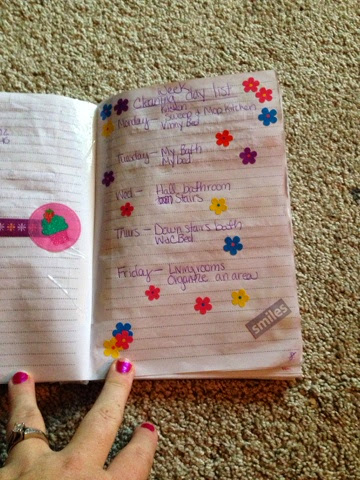 week
Cleaning day list
Kitchen
Monday - Sweep & Mop Kitchen
Vinny Bed
Tuesday - My Bath
My bed
Wed - Hall bathroom
Stairs
Thurs - Down stairs bath
Wac Bed
Friday - Living rooms
Organize an area
smiles